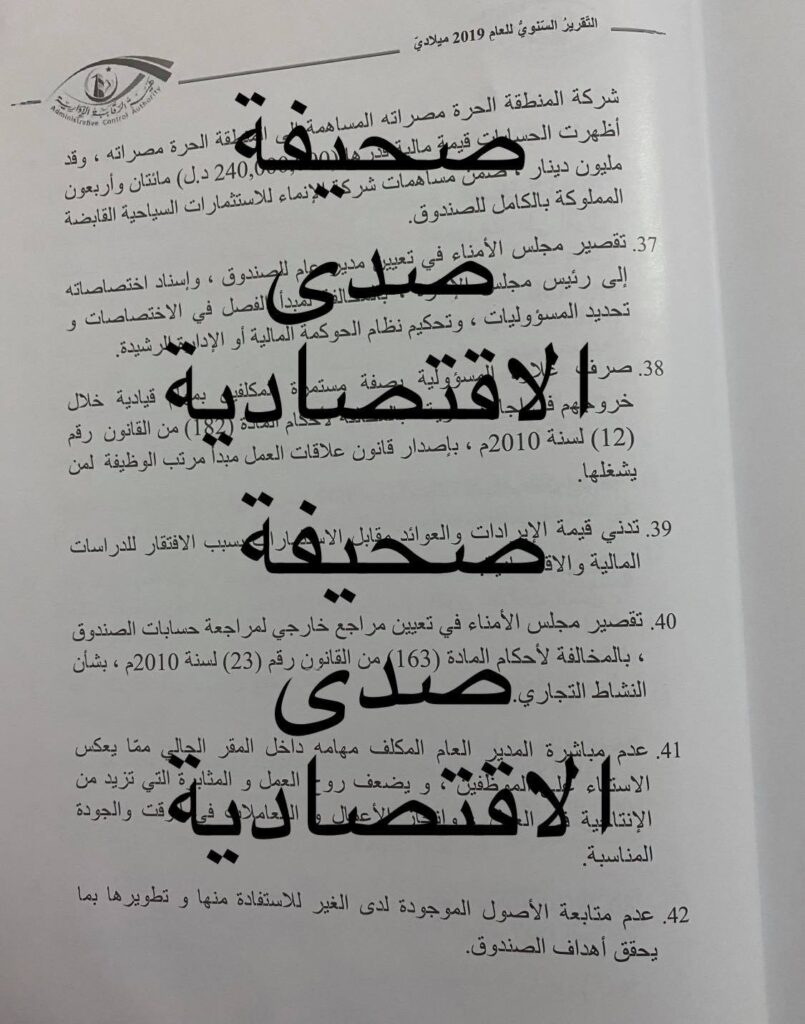 التَّقريرُ السَّنويُّ للعامِ 2019 ميلاديّ
هيئة الرقابة الإدارية
Administrative Control Authority
شركة المنطقة الحرة مصراته المساهمة إلى المنطقة الحرة مصراته ، وقد
أظهرت الحسابات قيمة مالية قدرها (240,000,000 د.ل) مائتان وأربعون
مليون دينار ، ضمن مساهمات شركة الإنماء للاستثمارات السياحية القابضة
المملوكة بالكامل للصندوق.
37. تقصير مجلس الأمناء في تعيين مدير عام للصندوق ، وإسناد اختصاصاته
إلى رئيس مجلس الإدارة ، بالمخالفة لمبدأ الفصل في الاختصاصات و
تحديد المسؤوليات ، وتحكيم نظام الحوكمة المالية أو الإدارة الرشيدة.
38. صرف علاوة المسؤولية بصفة مستمرة للمكلفين بمهام قيادية خلال
خروجهم في إجازات سنوية ، بالمخالفة لأحكام المادة (182) من القانون رقم
(12) لسنة 2010م ، بإصدار قانون علاقات العمل مبدأ مرتب الوظيفة لمن
يشغلها.
39. تدني قيمة الإيرادات والعوائد مقابل الاستثمارات بسبب الافتقار للدراسات
المالية
40. تقصير مجلس الأمناء في تعيين مراجع خارجي لمراجعة حسابات الصندوق
، بالمخالفة لأحكام المادة (163) من القانون رقم (23) لسنة 2010م ، بشأن
النشاط التجاري.
41. عدم مباشرة المدير العام المكلف مهامه داخل المقر الحالي ممّا يعكس
الاستياء على الموظفين ، و يضعف روح العمل و المثابرة التي تزيد من
الإنتاجية في العمل وإنجاز الأعمال و المعاملات في الوقت والجودة
المناسبة.
42. عدم متابعة الأصول الموجودة لدى الغير للاستفادة منها و تطويرها بما
يحقق أهداف الصندوق.
صحيفة
صدى
الاقتصادية
صحيفة
صدى
الاقتصادية